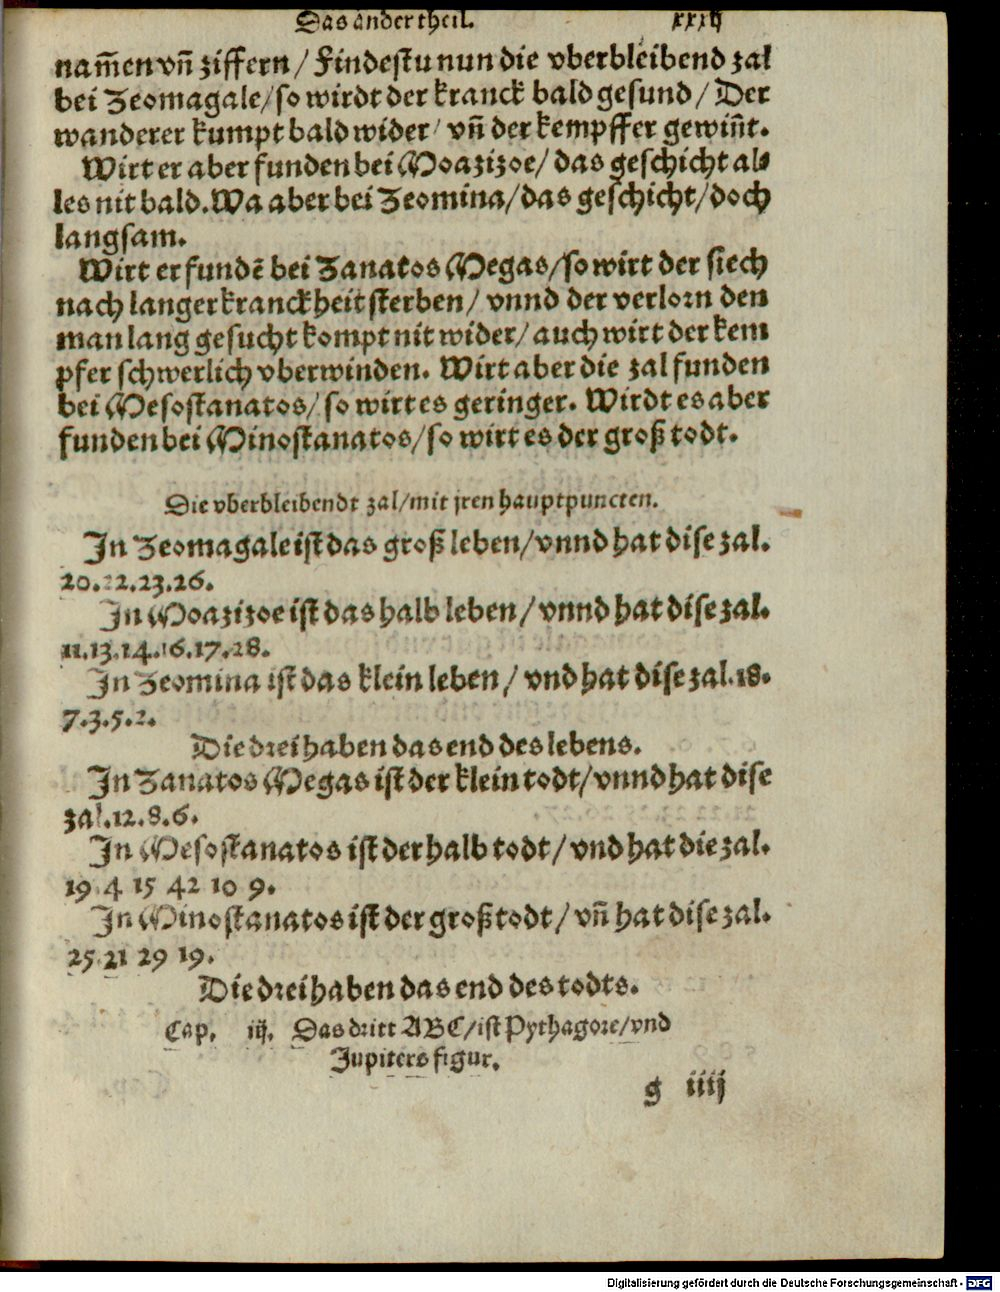 Das ander theil. xxxij
nam̃en vñ ziffern / Findestu nun die vberbleibend zal
bei Zeomagale / so wirdt der kranck bald gesund / Der
wanderer kumpt bald wider / vñ der kempffer gewiñt.
Wirt er aber funden bei Moazizoe / das geschicht al⸗
les nit bald. Wa aber bei Zeomina / das geschicht / doch
langsam.
Wirt er fundē bei Zanatos Megas / so wirt der siech
nach langer kranckheit sterben / vnnd der verlorn den
man lang gesucht kompt nit wider / auch wirt der kem
pfer schwerlich vberwinden. Wirt aber die zal funden
bei Mesostanatos / so wirt es geringer. Wirdt es aber
funden bei Minostanatos / so wirt es der groß todt.
Die vberbleibendt zal / mit jren hauptpuncten.
In Zeomagale ist das groß leben / vnnd hat dise zal.
20.22.23.26.
In Moazizoe ist das halb leben / vnnd hat dise zal.
11.13.14.16.17.28.
In Zeomina ist das klein leben / vnd hat dise zal.18.
7.3.5.2.
Die drei haben das end des lebens.
In Zanatos Megas ist der klein todt / vnnd hat dise
zal.12.8.6.
In Mesostanatos ist der halb todt / vnd hat die zal.
19 4 15 42 10 9.
In Minostanatos ist der groß todt / vñ hat dise zal.
25 21 29 19.
Die drei haben das end des todts.
Cap. iij. Das dritt ABC / ist Pythagore / vnd
Jupiters figur.
g iiij
Digitalisierung gefördert durch die Deutsche Forschungsgemeinschaft - DFG